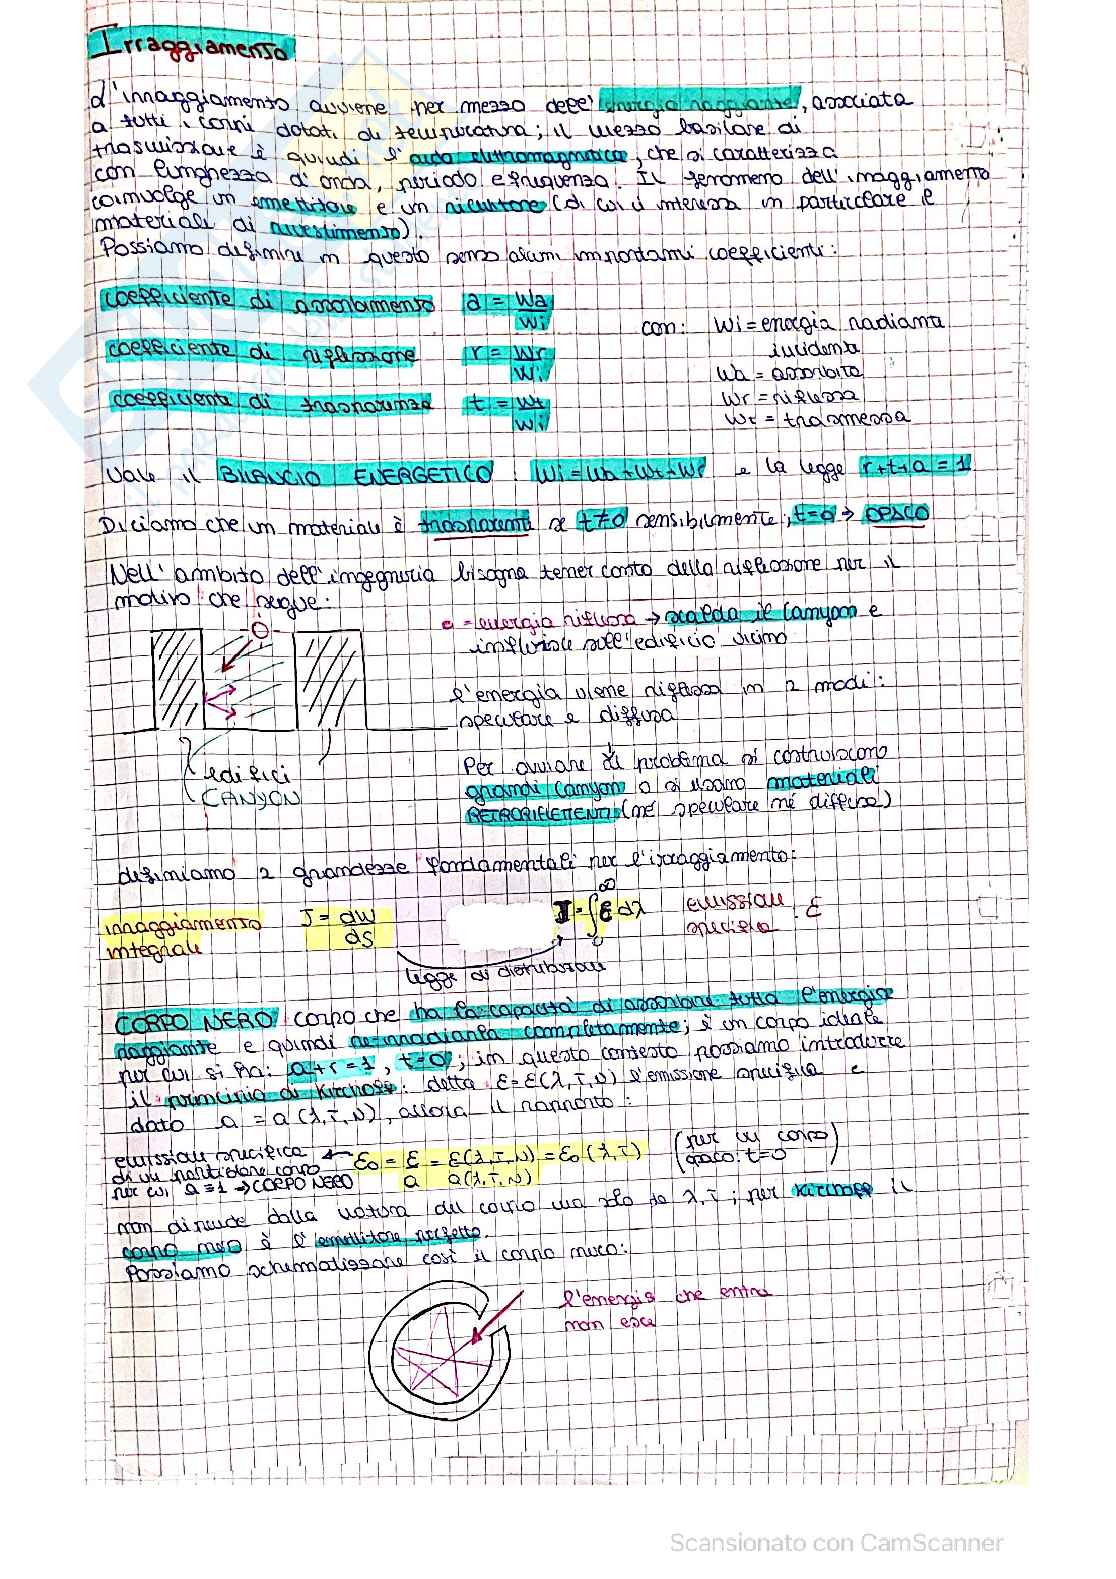 Irraggiamento
L'irraggiamento avviene per mezzo dell'energia raggiante, associata
a tutti i corpi dotati di temperatura; il mezzo basilare di
trasmissione è quindi l'onda elettromagnetica, che si caratterizza
con lunghezza d'onda, periodo e frequenza. Il fenomeno dell'irraggiamento
coinvolge un emettitore e un ricettore (di cui ci interessa in particolare il
materiale di rivestimento).
Possiamo definire in questo senso alcuni importanti coefficienti:
coefficiente di assorbimento a = Wa/Wi
con: Wi = energia radiante
incidente
coefficiente di riflessione r = Wr/Wi
Wa = assorbita
Wr = riflessa
coefficiente di trasparenza t = Wt/Wi
Wt = trasmessa
Vale il BILANCIO ENERGETICO: Wi = Wa + Wt + Wr e la legge r+t+a = 1
Diciamo che un materiale è trasparente se t≠0 sensibilmente, t=0 → OPACO
Nell'ambito dell'ingegneria bisogna tener conto della riflessione per il
motivo che segue:
= energia riflessa → scalda il canyon e
influisce sull'edificio vicino
l'energia viene riflessa in 2 modi:
speculare e diffusa
edifici
CANYON
Per ovviare il problema si costruiscono
grandi canyon o si usano materiali
RETRORIFLETTENTI (né speculare né diffusa)
definiamo 2 grandezze fondamentali per l'irraggiamento:
irraggiamento
integrale
J = dW/dS
J = ∫₀^∞ ε dλ
emissione
specifica ε
legge di distribuzione
CORPO NERO: corpo che ha la capacità di assorbire tutta l'energia
raggiante e quindi re-irradiarla completamente; è un corpo ideale
per cui si ha: a+r=1, t=0; in questo contesto possiamo introdurre
il principio di Kirchoff: detta ε=ε(λ,T,N) l'emissione specifica e
dato a = a(λ,T,N), allora il rapporto:
emissione specifica
di un particolare corpo
per cui a=1 → CORPO NERO
← ε₀ = ε/a = ε(λ,T,N)/a(λ,T,N) = ε₀(λ,T)
(per un corpo
opaco: t=0)
non dipende dalla natura del corpo ma solo da λ,T; per Kirchoff il
corpo nero è l'emettitore perfetto.
Possiamo schematizzare così il corpo nero:
l'energia che entra
non esce
Scansionato con CamScanner